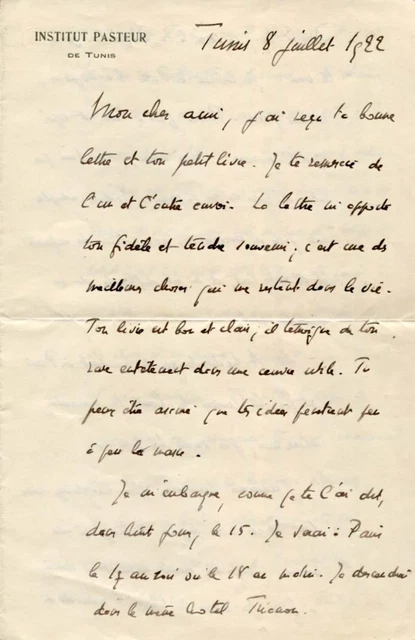 INSTITUT PASTEUR
DE TUNIS
Tunis 8 juillet 1922
Mon cher ami, j'ai reçu ta bonne
lettre et ton petit livre. Je te remercie de
l'un et l'autre envoi. La lettre m'apporte
ton fidèle et tendre souvenir; c'est une des
meilleures choses qui me restent dans la vie.
Ton livre est bon et clair, il témoigne de ton
rare entêtement dans une œuvre utile. Tu
peux être assuré que tes idées pénètrent peu
à peu la masse.
Je m'embarque, comme je te l'ai dit,
dans huit jours, le 15. Je serai à Paris
le 17 au soir ou le 18 au matin. Je descendrai
dans le même hôtel Trianon.